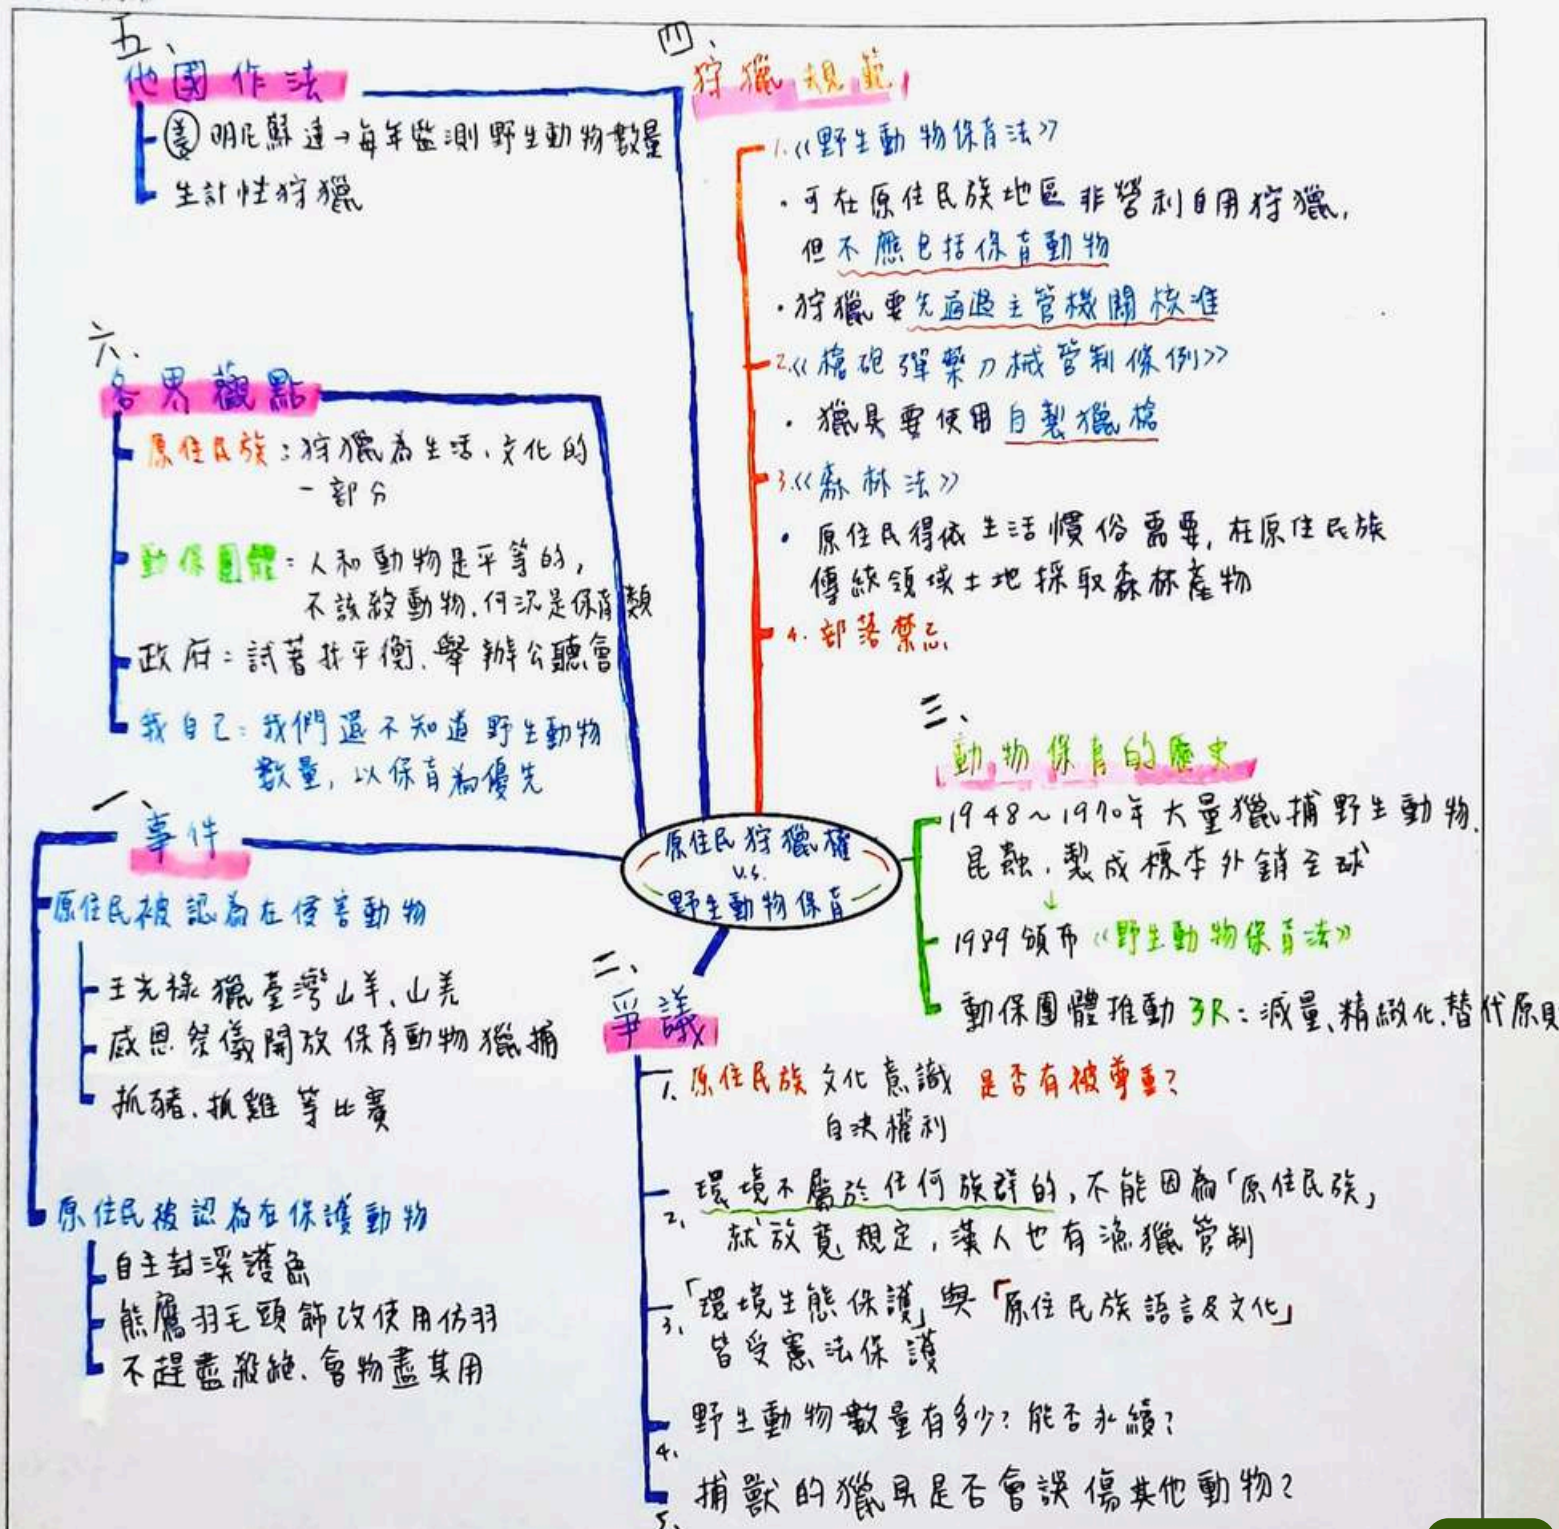 原住民狩獵權
v.s.
野生動物保育
一、
事件
原住民被認為在侵害動物
王光祿獵臺灣山羊、山羌
感恩祭儀開放保育動物獵捕
抓豬、抓雞等比賽
原住民被認為在保護動物
自主封溪護魚
熊鷹羽毛頭飾改使用仿羽
不趕盡殺絕、會物盡其用
二、
爭議
1. 原住民族文化意識 是否有被尊重?
自決權利
2. 環境不屬於任何族群的,不能因為「原住民族」
就放寬規定,漢人也有漁獵管制
3.「環境生態保護」與「原住民族語言及文化」
皆受憲法保護
4. 野生動物數量有多少?能否永續?
5. 捕獸的獵具是否會誤傷其他動物?
三、
動物保育的歷史
1948~1970年大量獵捕野生動物、
昆蟲,製成標本外銷全球
↓
1989頒布《野生動物保育法》
動保團體推動3R:減量、精緻化、替代原則
四、
狩獵規範
1.《野生動物保育法》
·可在原住民族地區非營利自用狩獵,
但不應包括保育動物
·狩獵要先通過主管機關核准
2.《槍砲彈藥刀械管制條例》
·獵具要使用自製獵槍
3.《森林法》
·原住民得依生活慣俗需要,在原住民族
傳統領域土地採取森林產物
4. 部落禁忌
五、
他國作法
美 明尼蘇達→每年監測野生動物數量
生計性狩獵
六、
各界觀點
原住民族:狩獵為生活、文化的
一部分
動保團體:人和動物是平等的,
不該殺動物,何況是保育類
政府:試著找平衡、舉辦公聽會
我自己:我們還不知道野生動物
數量,以保育為優先